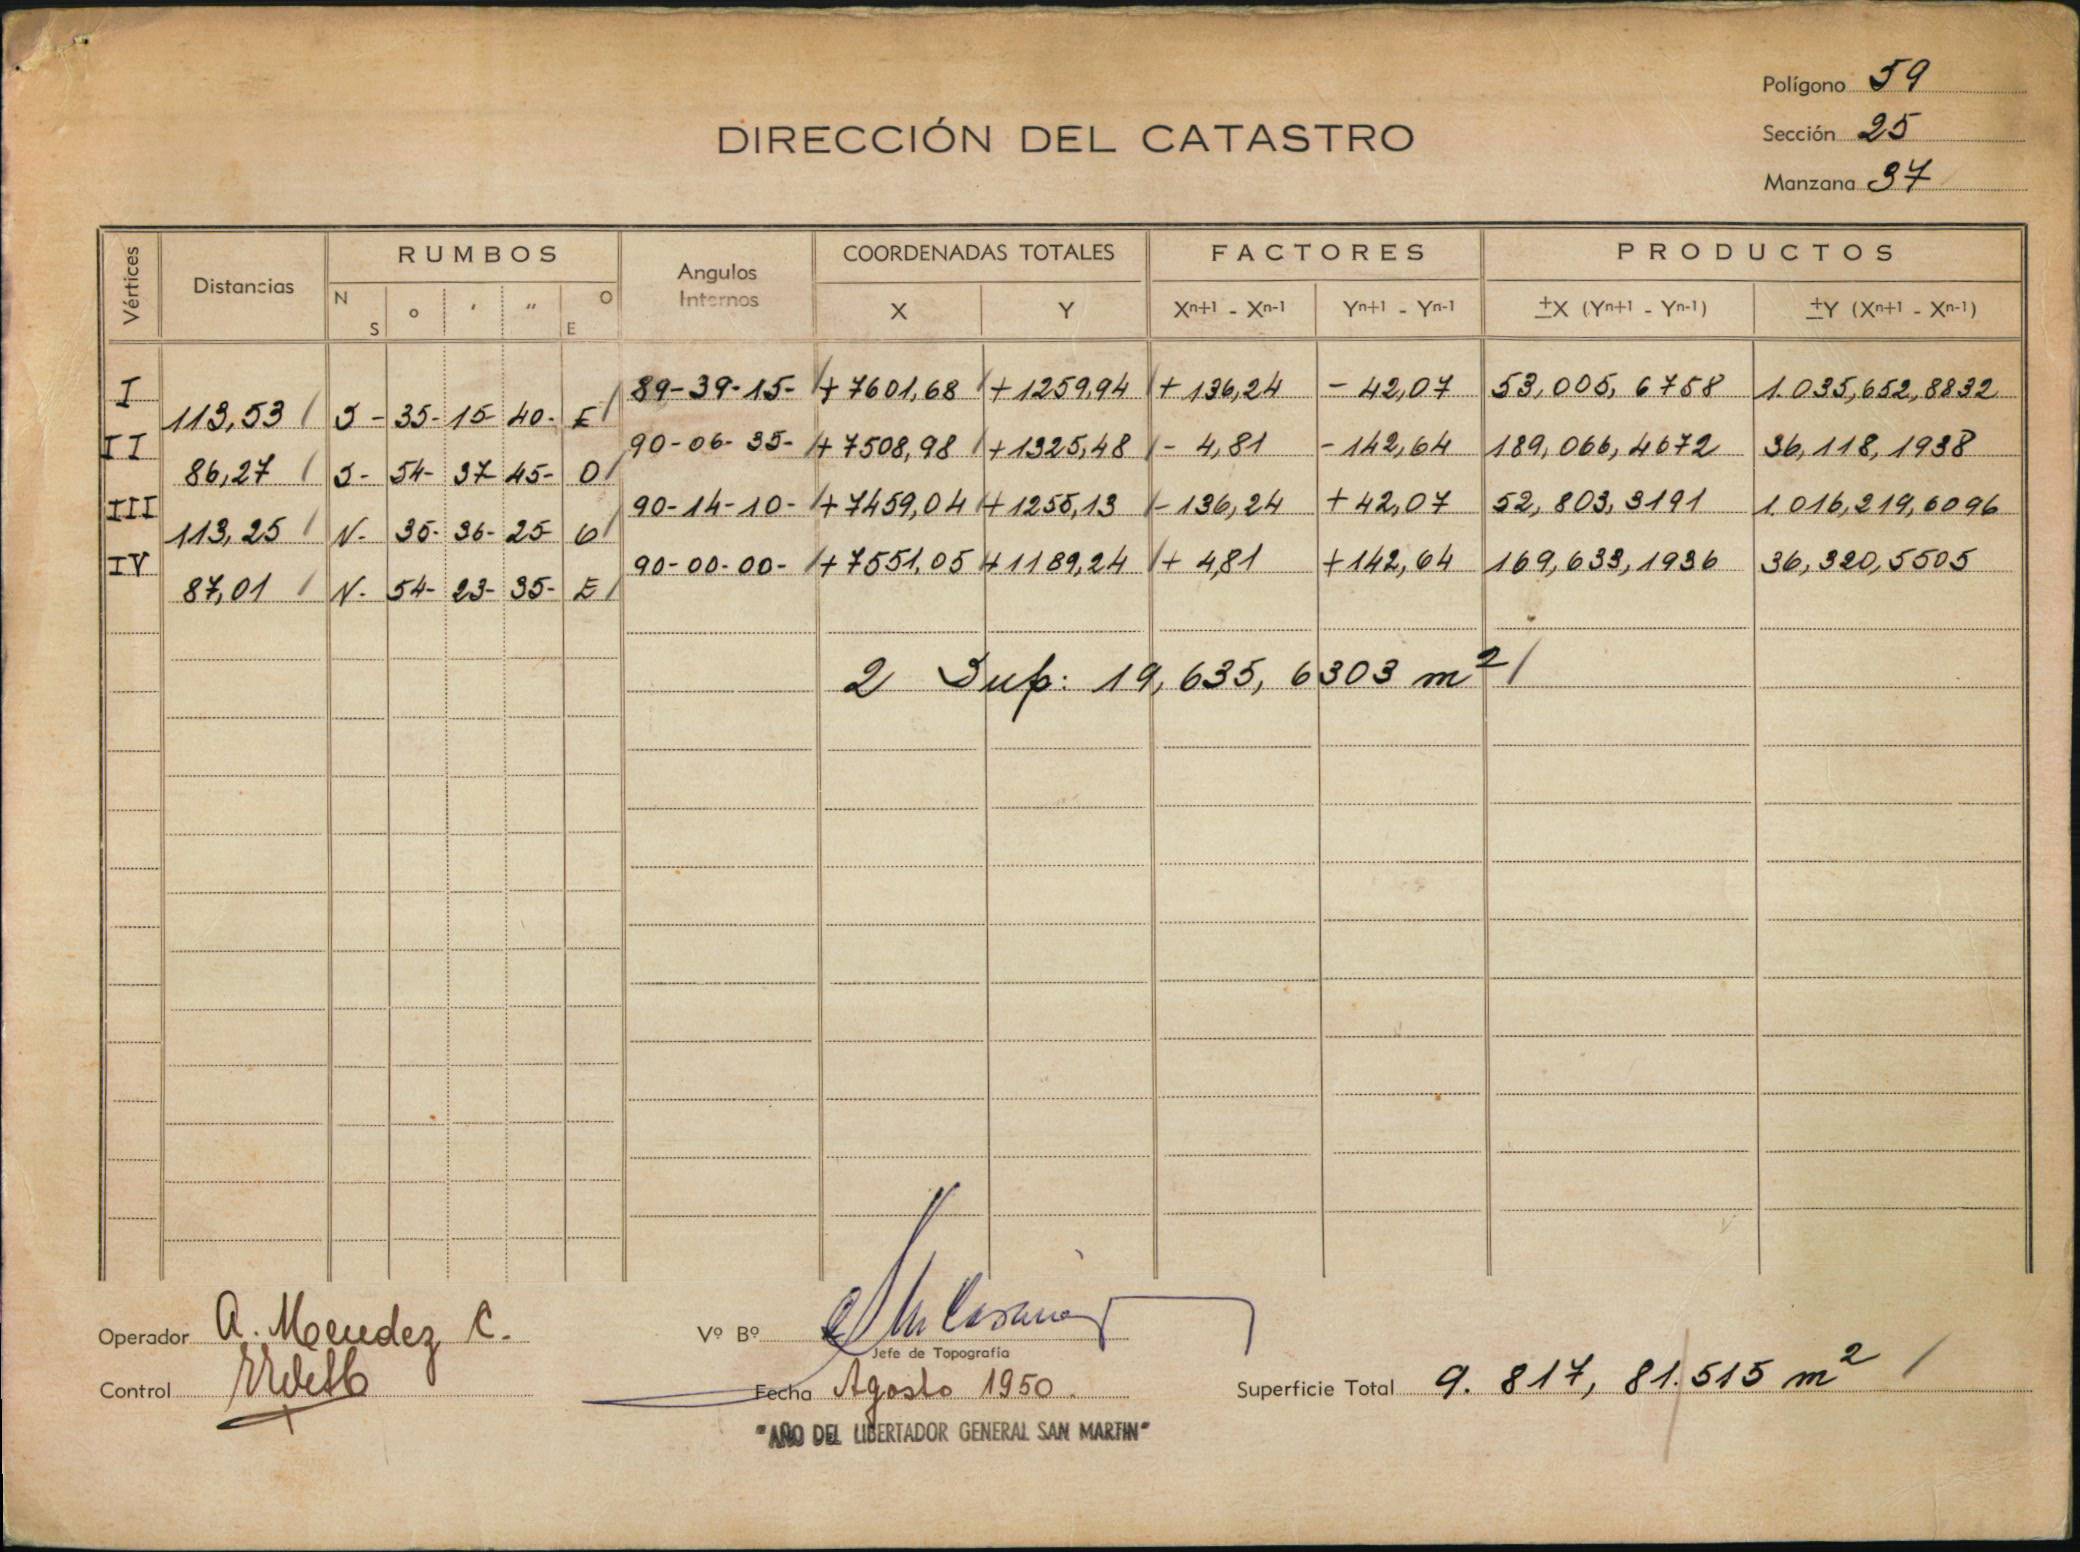 Polígono 59
DIRECCIÓN DEL CATASTRO
Sección 25
Manzana 37
Vértices Distancias RUMBOS Angulos Internos COORDENADAS TOTALES FACTORES PRODUCTOS
N S ° ' " O E X Y Xn+1 - Xn-1 Yn+1 - Yn-1 ±X (Yn+1 - Yn-1) ±Y (Xn+1 - Xn-1)
I 89-39-15- +7601,68 +1259,94 +136,24 -42,07 53,005,6758 1.035,652,8832
113,53 S- 35- 15- 40- E
II 90-06-35- +7508,98 +1325,48 -4,81 -142,64 189,066,4672 36,118,1938
86,27 S- 54- 37- 45- O
III 90-14-10- +7459,04 +1255,13 -136,24 +42,07 52,803,3191 1.016,219,6096
113,25 N- 35- 36- 25- O
IV 90-00-00- +7551,05 +1189,24 +4,81 +142,64 169,633,1936 36,320,5505
87,01 N- 54- 23- 35- E
2 Sup: 19,635,6303 m²
Operador A. Mendez C.
Vº Bº
Jefe de Topografía
Control
Fecha Agosto 1950.
Superficie Total 9.817,81.515 m²
"AÑO DEL LIBERTADOR GENERAL SAN MARTIN"